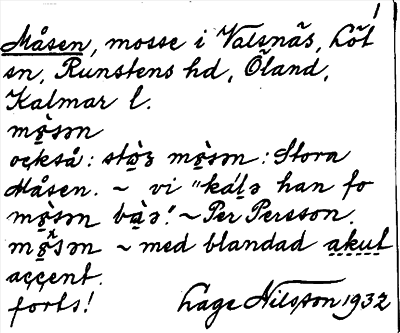 Måsen, mosse i Valsnäs, Löt
sn, Runstens hd, Öland,
Kalmar l.
mo̤̊̀sən
också: sto̤̊̀ᴣ mo̤̊̀sən: Stora
Måsen. ~ vi "kál̤ə han fo
mo̤̊̀sən bå̤̀ə! ~ Per Persson.
mo̤̊̃sən ~ med blandad akut
accent.
forts! Låge Nilsson 1932